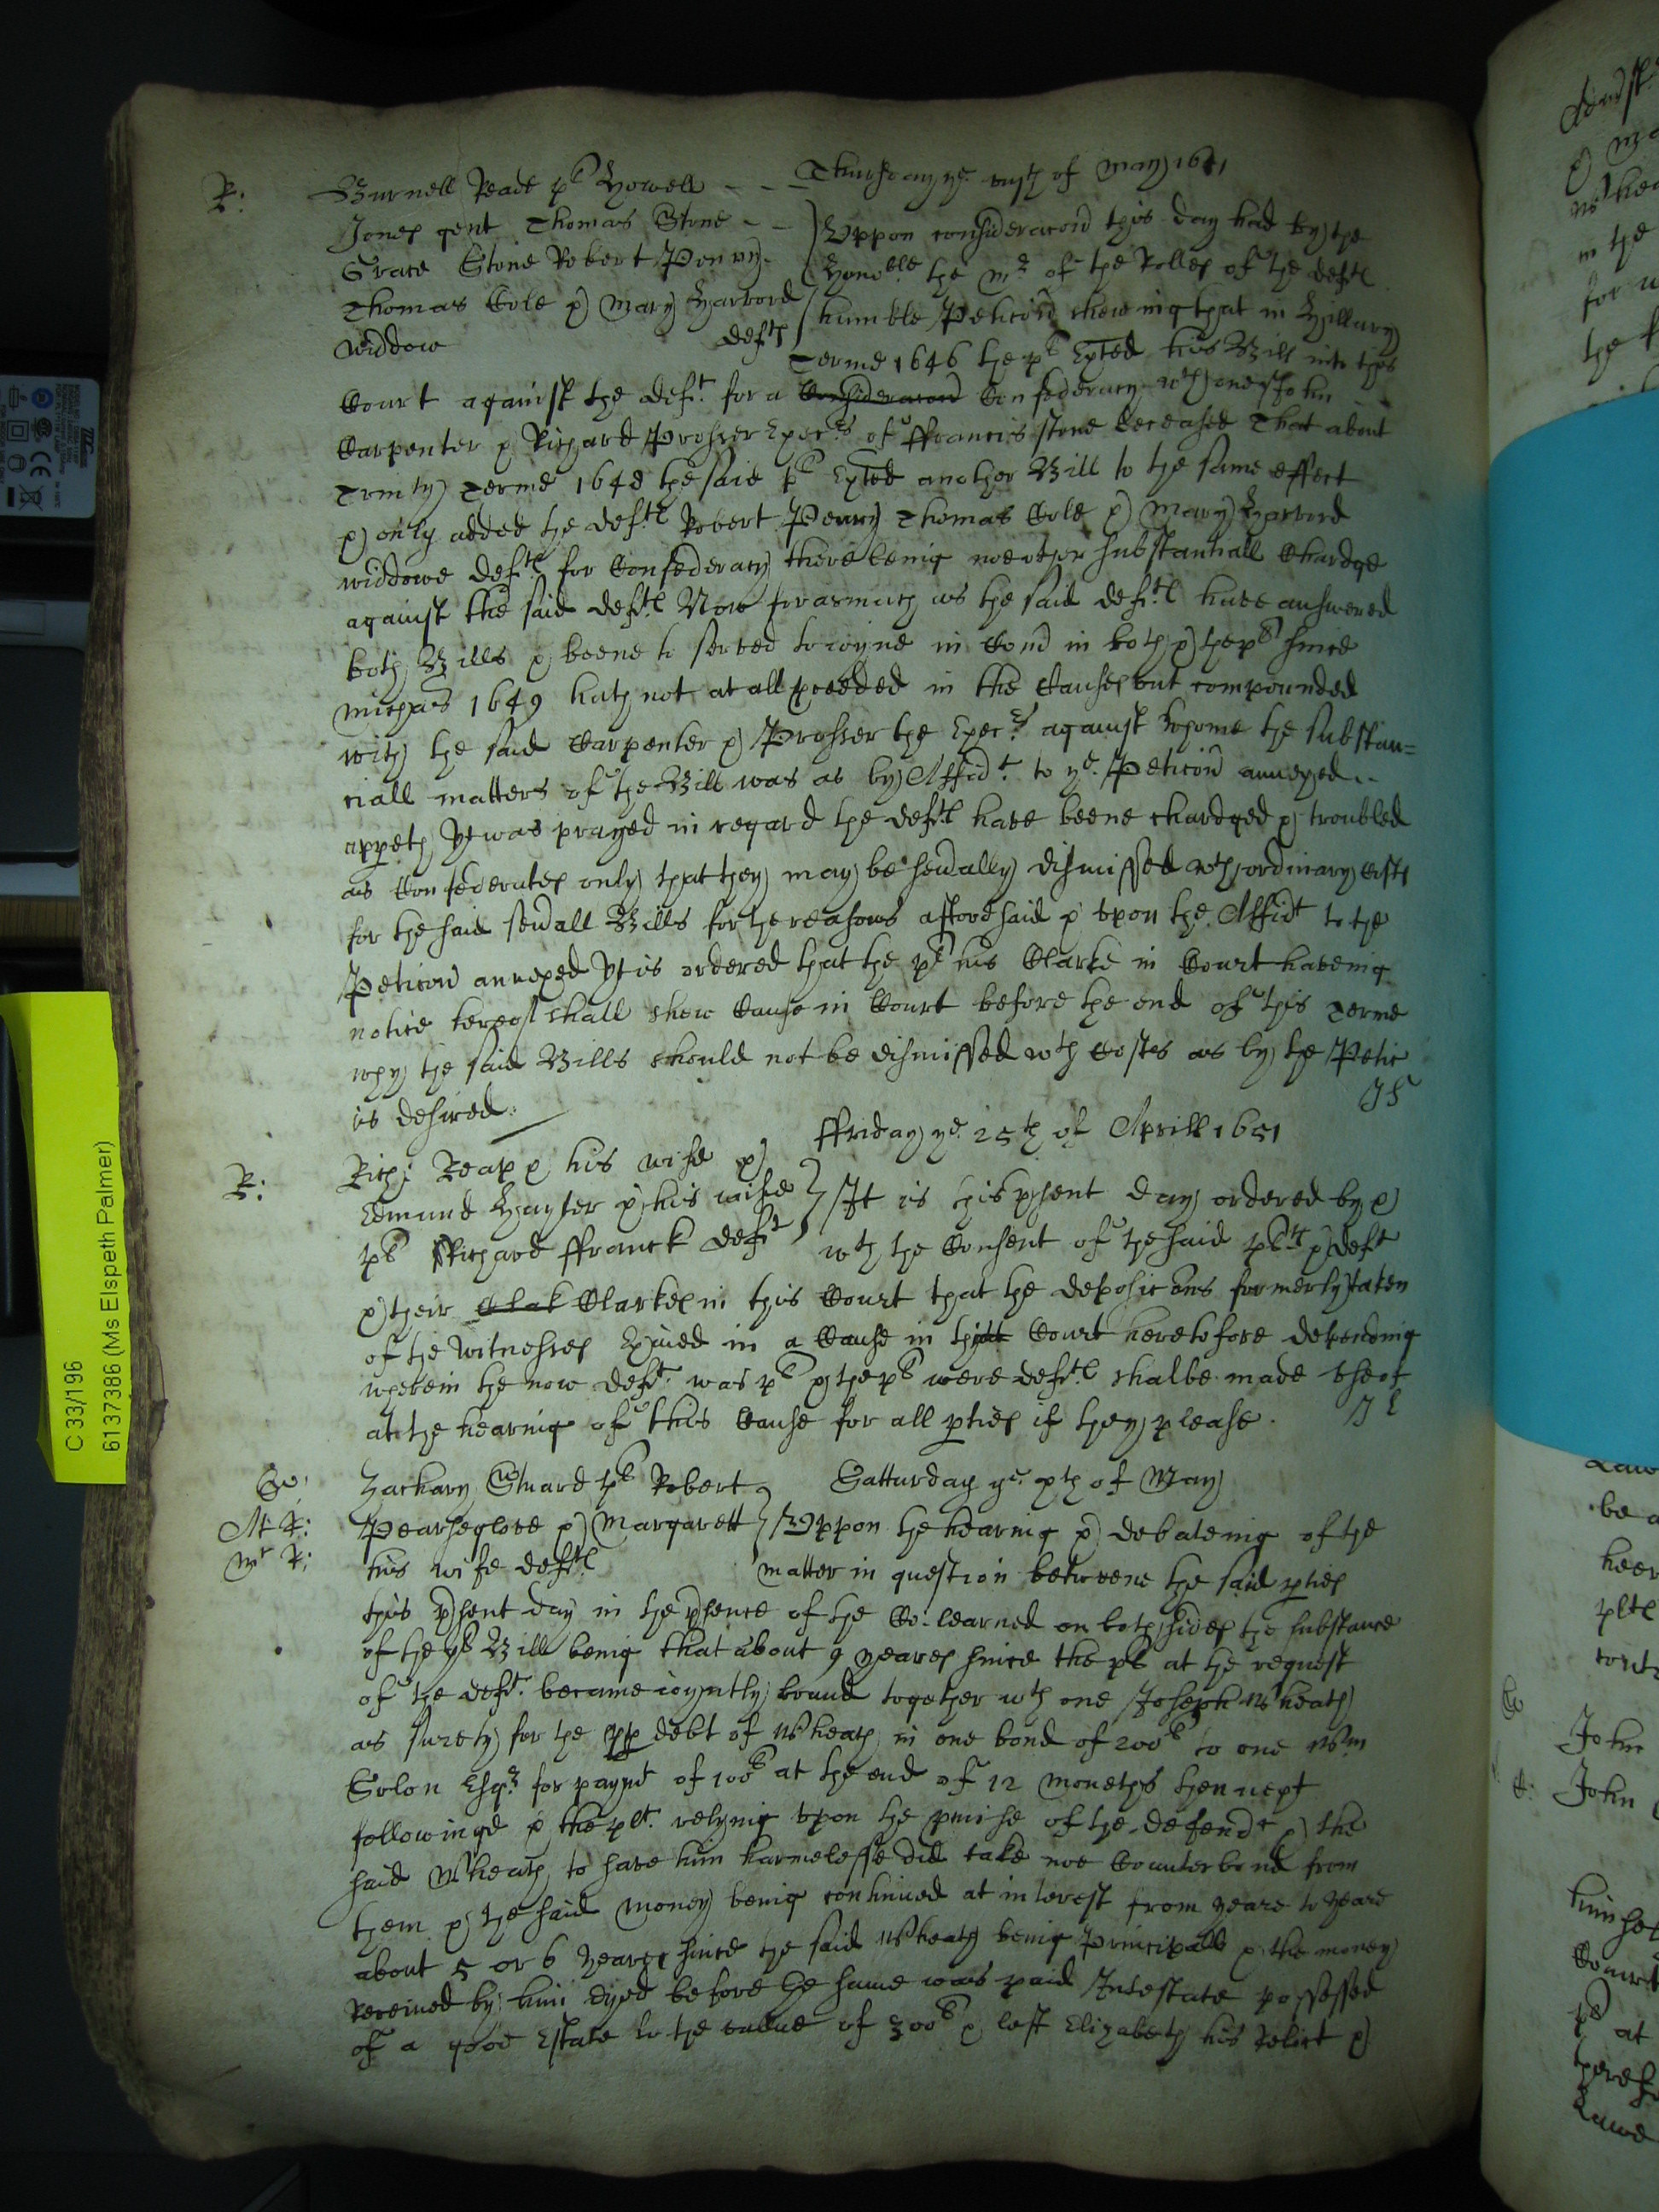 R: Burnell Reade plt Howell - - - Thursday ye viijth of May 1651
Jones gent Thomas Stone - -
Grace Stone Robert Penry
Thomas Cole & Mary Harvord
widdow defts
Uppon consideracon this day had by the
Honoble the Mr of the Rolles of the defts
humble Peticon shewing that in Hillary
Terme 1646 the plt Exted his Bill into this
Court against the deft for a Consideracon Confederacy wth one John
Carpenter & Richard Prosser Execrs of ffrancis Stone deceased That about
Trinity Terme 1648 the said plt Exted another Bill to the same effect
& only added the defts Robert Penry Thomas Cole & Mary Harvord
widdowe defts for Confederacy there being noe other substantiall Chardge
against the said defts Now forasmuch as the said defts have answered
both Bills & beene to served to ioyne in Com in both & the plt since
Michas 1649 hath not at all pceeded in the Causes but compounded
with the said Carpenter & Prosser the Execrs against whome the substan=
ciall matters of the Bill was as by Affidt to ye Peticon annexed
appeth Yt was prayed in regard the defts have beene chardged & troubled
as Confederates only that they may be sevally dismissed wth ordinary costs
for the said sevall Bills for the reasons afforesaid & upon the Affidt to the
Peticon annexed Yt is ordered that the plt his Clarke in Court haveing
notice hereof shall shew Cause in Court before the end of this Terme
why the said Bills should not be dismissed wth Costes as by the Petic
is desired
ffriday ye 25th of Aprill 1651
R: Rich: Reap & his wife &
Edmund Hayter & his wife
plts Richard ffranck deft
It is this psent day ordered by &
wth the Consent of the said plts & deft
& their Clak Clarkes in this Court that the deposicons formerly taken
of the Witnesses Exaied in a Cause in this Court heretofore depending
wherein the now deft was plt & the plts were defts shalbe made use of
at the hearing of this Cause for all pties if they please.
Zachary Steward plt Robert
Satturday ye xth of May
Mr R:
Pearseglove & Margarett
Uppon the hearing & debateing of the
his wife defts
matter in question betweene the said pties
this psent day in the psence of the Co: learned on both sides the substance
of the plts Bill being that about 9 yeares since the plt at the request
of the deft became ioyntly bound together wth one Joseph Wheath
as surety for the pp debt of Wheath in one bond of 200l to one Wm
Solon Esqr for paymt of 100l at the end of 12 moneths then next
followinge & the plt relying upon the pmise of the defendt & the
said Wheath to save him harmelesse did take noe Counterbond from
them & the said money being continued at interest from yeare to yeare
about 5 or 6 yeares since the said Wheath being Principall & the money
Received by him dyed before the same was paid Intestate possessed
of a good Estate to the value of 300l & left Elizabeth his Relict &
C 33/196
61373786 (Ms Elspeth Palmer)
John
John